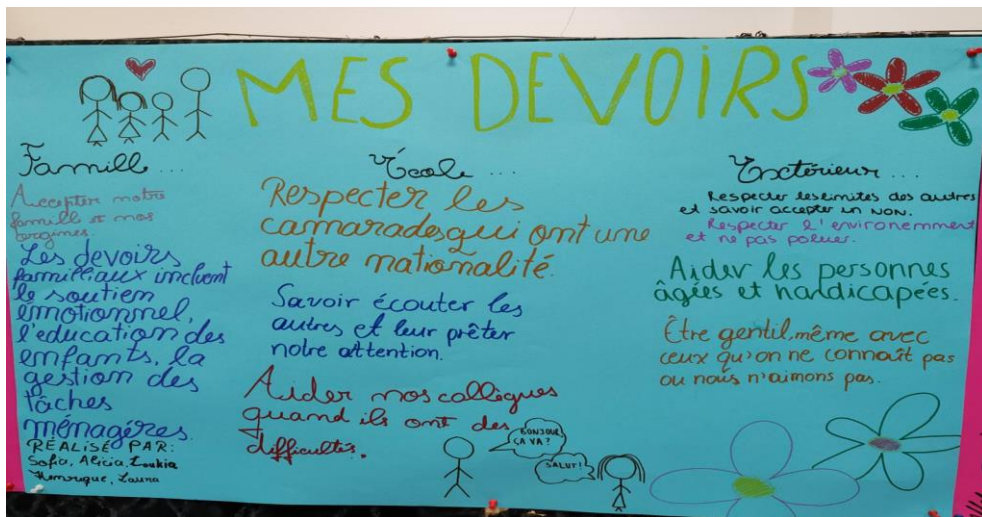 MES DEVOIRS
Famill...
Accepter notre
famill et nos
Les devoirs
familliaux incluent
le soutien
emotionnel,
l'education des
enfants, la
gestion des
tâches
ménagères.
RÉALISÉ PAR:
Sofia, Alicia, Loukia
Henrique, Launa
École...
Respecter les
camarades qui ont une
autre nationalité.
Savoir écouter les
autres et leur prêter
notre attention.
Aider nos collègues
quand ils ont des
difficultés.
BONJOUR
ÇA VA?
SALUT!
Exctérieur...
Respecter les limites des autres
et savoir accepter un NON.
Respecter l'environemment
et ne pas poluer.
Aider les personnes
âgées et handicapées.
Être gentil, même avec
ceux qu'on ne connaît pas
ou nous n'aimons pas.